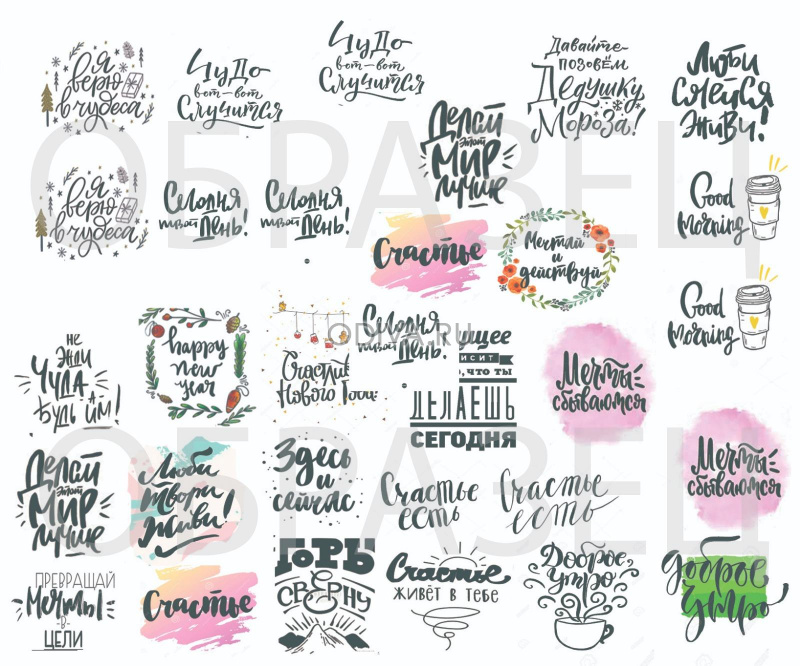 я
верю
в чудеса
Чудо
вот-вот
Случится
Чудо
вот-вот
Случится
Давайте-
позовём
Дедушку
Мороза!
Люби
Смейся
Живи!
Делай
этот
Мир
лучше
я
верю
в чудеса
Сегодня
твой День!
Сегодня
твой День!
Счастье
Мечтай
и
действуй
Good
Morning
ОБРАЗЕЦ
не
Жди
ЧУДА
БУДЬ ИМ!
happy
new
year
Счастли
Нового Года
Сегодня
твой День!
ODIVA.RU
ущее
ИСИТ
, что ты
ДЕЛАЕШЬ
СЕГОДНЯ
Мечты
сбываются
Good
Morning
Делай
этот
Мир
лучше
Люби
твори
Живи!
Здесь
и
сейчас
Счастье
есть
Счастье
есть
Мечты
сбываются
ОБРАЗЕЦ
ПРЕВРАЩАЙ
Мечты
-В-
ЦЕЛИ
Счастье
ГОРЫ
СВЕРНУ
Счастье
ЖИВЁТ В ТЕБЕ
Доброе
утро
доброе
утро